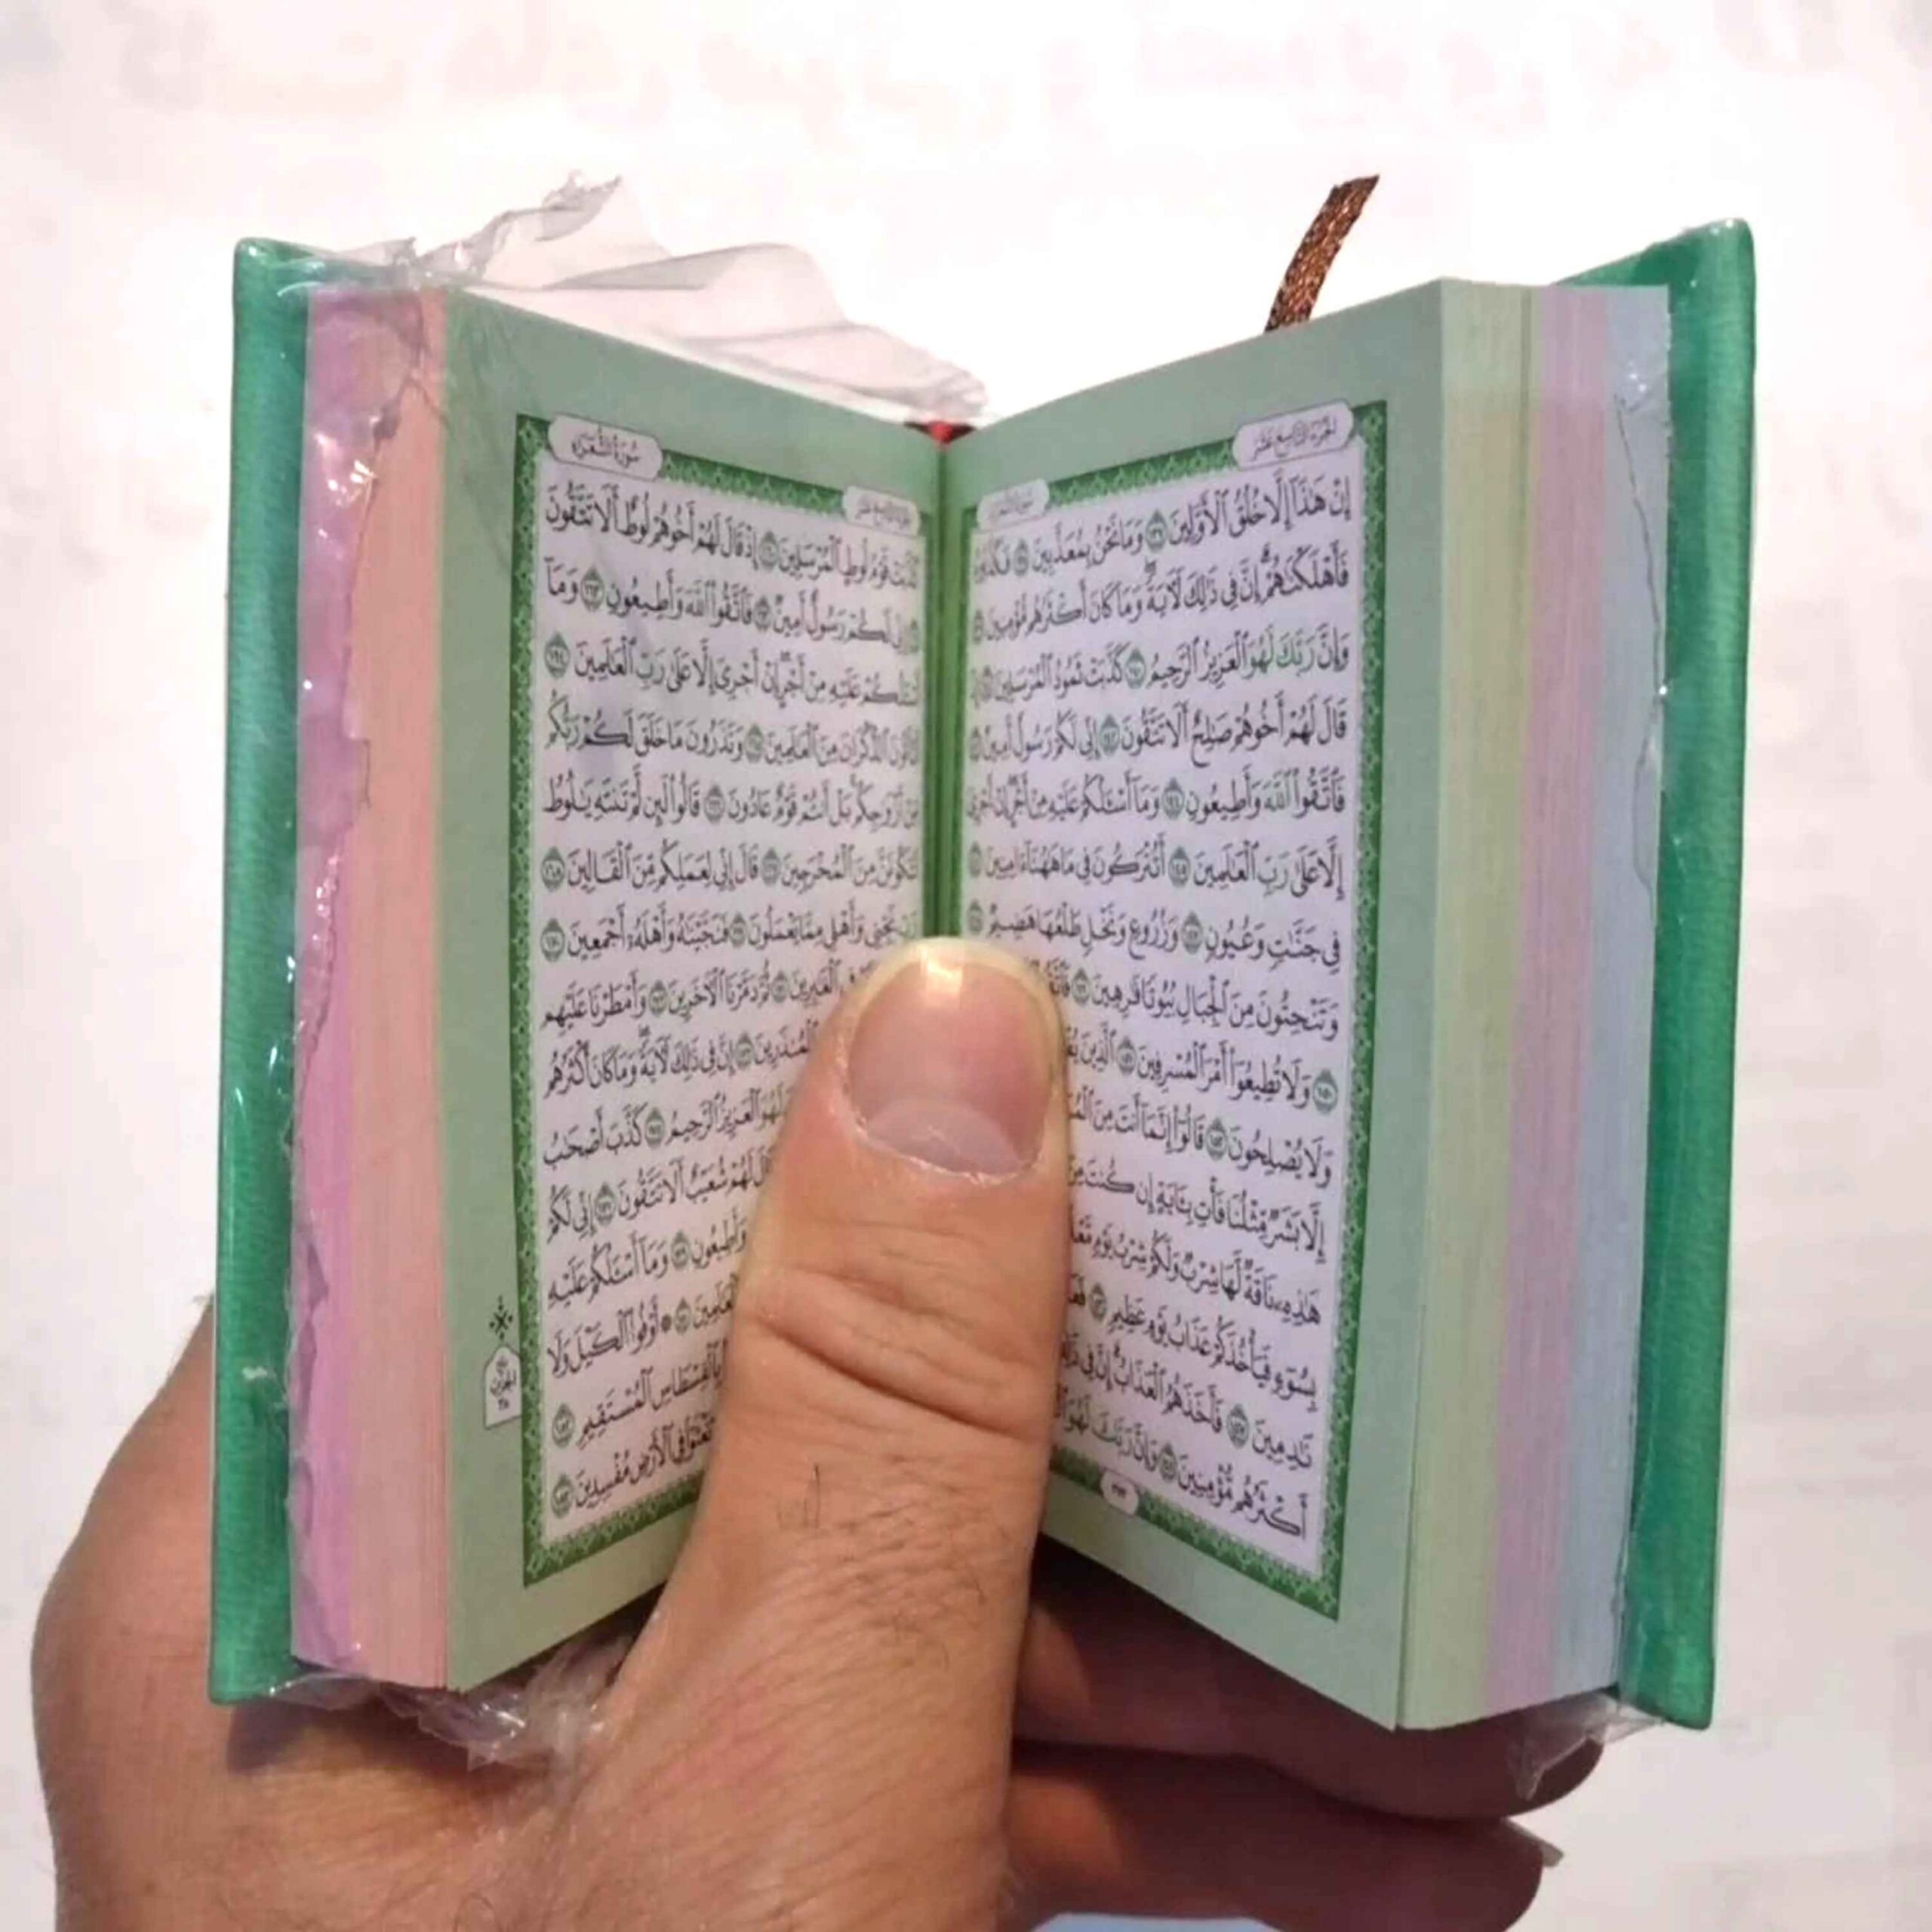 الجزء التاسع عشر
إِنْ هَٰذَآ إِلَّا خُلُقُ ٱلْأَوَّلِينَ ١٣٧ وَمَا نَحْنُ بِمُعَذَّبِينَ ١٣٨ فَكَذَّبُوهُ
فَأَهْلَكْنَٰهُمْ ۗ إِنَّ فِى ذَٰلِكَ لَأٓيَةً ۖ وَمَا كَانَ أَكْثَرُهُم مُّؤْمِنِينَ ١٣٩
وَإِنَّ رَبَّكَ لَهُوَ ٱلْعَزِيزُ ٱلرَّحِيمُ ١٤٠ كَذَّبَتْ ثَمُودُ ٱلْمُرْسَلِينَ ١٤١ إِذْ
قَالَ لَهُمْ أَخُوهُمْ صَٰلِحٌ أَلَا تَتَّقُونَ ١٤٢ إِنِّى لَكُمْ رَسُولٌ أَمِينٌ ١٤٣
فَٱتَّقُوا۟ ٱللَّهَ وَأَطِيعُونِ ١٤٤ وَمَآ أَسْـَٔلُكُمْ عَلَيْهِ مِنْ أَجْرٍ ۖ إِنْ أَجْرِىَ
إِلَّا عَلَىٰ رَبِّ ٱلْعَٰلَمِينَ ١٤٥ أَتُتْرَكُونَ فِى مَا هَٰهُنَآ ءَامِنِينَ ١٤٦
فِى جَنَّٰتٍ وَعُيُونٍ ١٤٧ وَزُرُوعٍ وَنَخْلٍ طَلْعُهَا هَضِيمٌ ١٤٨
وَتَنْحِتُونَ مِنَ ٱلْجِبَالِ بُيُوتًا فَٰرِهِينَ ١٤٩
١٥٠ وَلَا تُطِيعُوٓا۟ أَمْرَ ٱلْمُسْرِفِينَ ١٥١ ٱلَّذِينَ
وَلَا يُصْلِحُونَ ١٥٢ قَالُوٓا۟ إِنَّمَآ أَنتَ مِنَ
إِلَّا بَشَرٌ مِّثْلُنَا فَأْتِ بِـَٔايَةٍ إِن كُنتَ مِنَ
هَٰذِهِۦ نَاقَةٌ لَّهَا شِرْبٌ وَلَكُمْ شِرْبُ يَوْمٍ
بِسُوٓءٍ فَيَأْخُذَكُمْ عَذَابُ يَوْمٍ عَظِيمٍ ١٥٦
نَٰدِمِينَ ١٥٧ فَأَخَذَهُمُ ٱلْعَذَابُ ۗ إِنَّ فِى
أَكْثَرُهُم مُّؤْمِنِينَ ١٥٨ وَإِنَّ رَبَّكَ لَهُوَ
٣٧٣
سورة الشعراء
كَذَّبَتْ قَوْمُ لُوطٍ ٱلْمُرْسَلِينَ ١٦٠ إِذْ قَالَ لَهُمْ أَخُوهُمْ لُوطٌ أَلَا تَتَّقُونَ
١٦١ إِنِّى لَكُمْ رَسُولٌ أَمِينٌ ١٦٢ فَٱتَّقُوا۟ ٱللَّهَ وَأَطِيعُونِ ١٦٣ وَمَآ
أَسْـَٔلُكُمْ عَلَيْهِ مِنْ أَجْرٍ ۖ إِنْ أَجْرِىَ إِلَّا عَلَىٰ رَبِّ ٱلْعَٰلَمِينَ ١٦٤
أَتَأْتُونَ ٱلذُّكْرَانَ مِنَ ٱلْعَٰلَمِينَ ١٦٥ وَتَذَرُونَ مَا خَلَقَ لَكُمْ رَبُّكُم
مِّنْ أَزْوَٰجِكُم ۚ بَلْ أَنتُمْ قَوْمٌ عَادُونَ ١٦٦ قَالُوا۟ لَئِن لَّمْ تَنتَهِ يَٰلُوطُ
لَتَكُونَنَّ مِنَ ٱلْمُخْرَجِينَ ١٦٧ قَالَ إِنِّى لِعَمَلِكُم مِّنَ ٱلْقَالِينَ ١٦٨
رَبِّ نَجِّنِى وَأَهْلِى مِمَّا يَعْمَلُونَ ١٦٩ فَنَجَّيْنَٰهُ وَأَهْلَهُۥٓ أَجْمَعِينَ ١٧٠
فِى ٱلْغَٰبِرِينَ ١٧١ ثُمَّ دَمَّرْنَا ٱلْأٓخَرِينَ ١٧٢ وَأَمْطَرْنَا عَلَيْهِم
ٱلْمُنذَرِينَ ١٧٣ إِنَّ فِى ذَٰلِكَ لَأٓيَةً ۖ وَمَا كَانَ أَكْثَرُهُم
لَهُوَ ٱلْعَزِيزُ ٱلرَّحِيمُ ١٧٥ كَذَّبَ أَصْحَٰبُ
قَالَ لَهُمْ شُعَيْبٌ أَلَا تَتَّقُونَ ١٧٧ إِنِّى لَكُمْ
وَأَطِيعُونِ ١٧٩ وَمَآ أَسْـَٔلُكُمْ عَلَيْهِ
ٱلْعَٰلَمِينَ ١٨٠ ۞ أَوْفُوا۟ ٱلْكَيْلَ وَلَا
بِٱلْقِسْطَاسِ ٱلْمُسْتَقِيمِ ١٨٢
تَعْثَوْا۟ فِى ٱلْأَرْضِ مُفْسِدِينَ ١٨٣